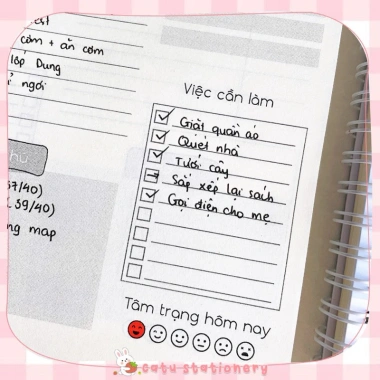 cơm + ăn cơm
lớp Dung
ngơi
37/40)
39/40)
ng map
Việc cần làm
Giặt quần áo
Quét nhà
Tưới cây
Sắp xếp lại sách
Gọi điện cho mẹ
Tâm trạng hôm nay
catu stationery